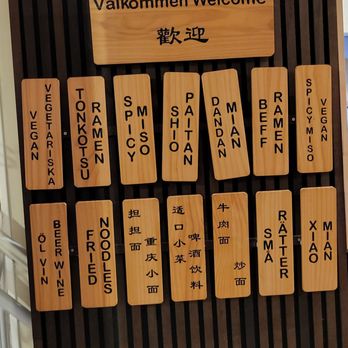 Välkommen Welcome
歡迎
VEGETARISKA
VEGAN
RAMEN
TONKOTSU
MISO
SPICY
PAITAN
SHIO
MIAN
DANDAN
RAMEN
BEFF
VEGAN
SPICY MISO
BEER WINE
ÖL VIN
NOODLES
FRIED
担担面
重庆小面
适口小菜
啤酒饮料
牛肉面
炒面
RÄTTER
SMÅ
MIAN
XIAO